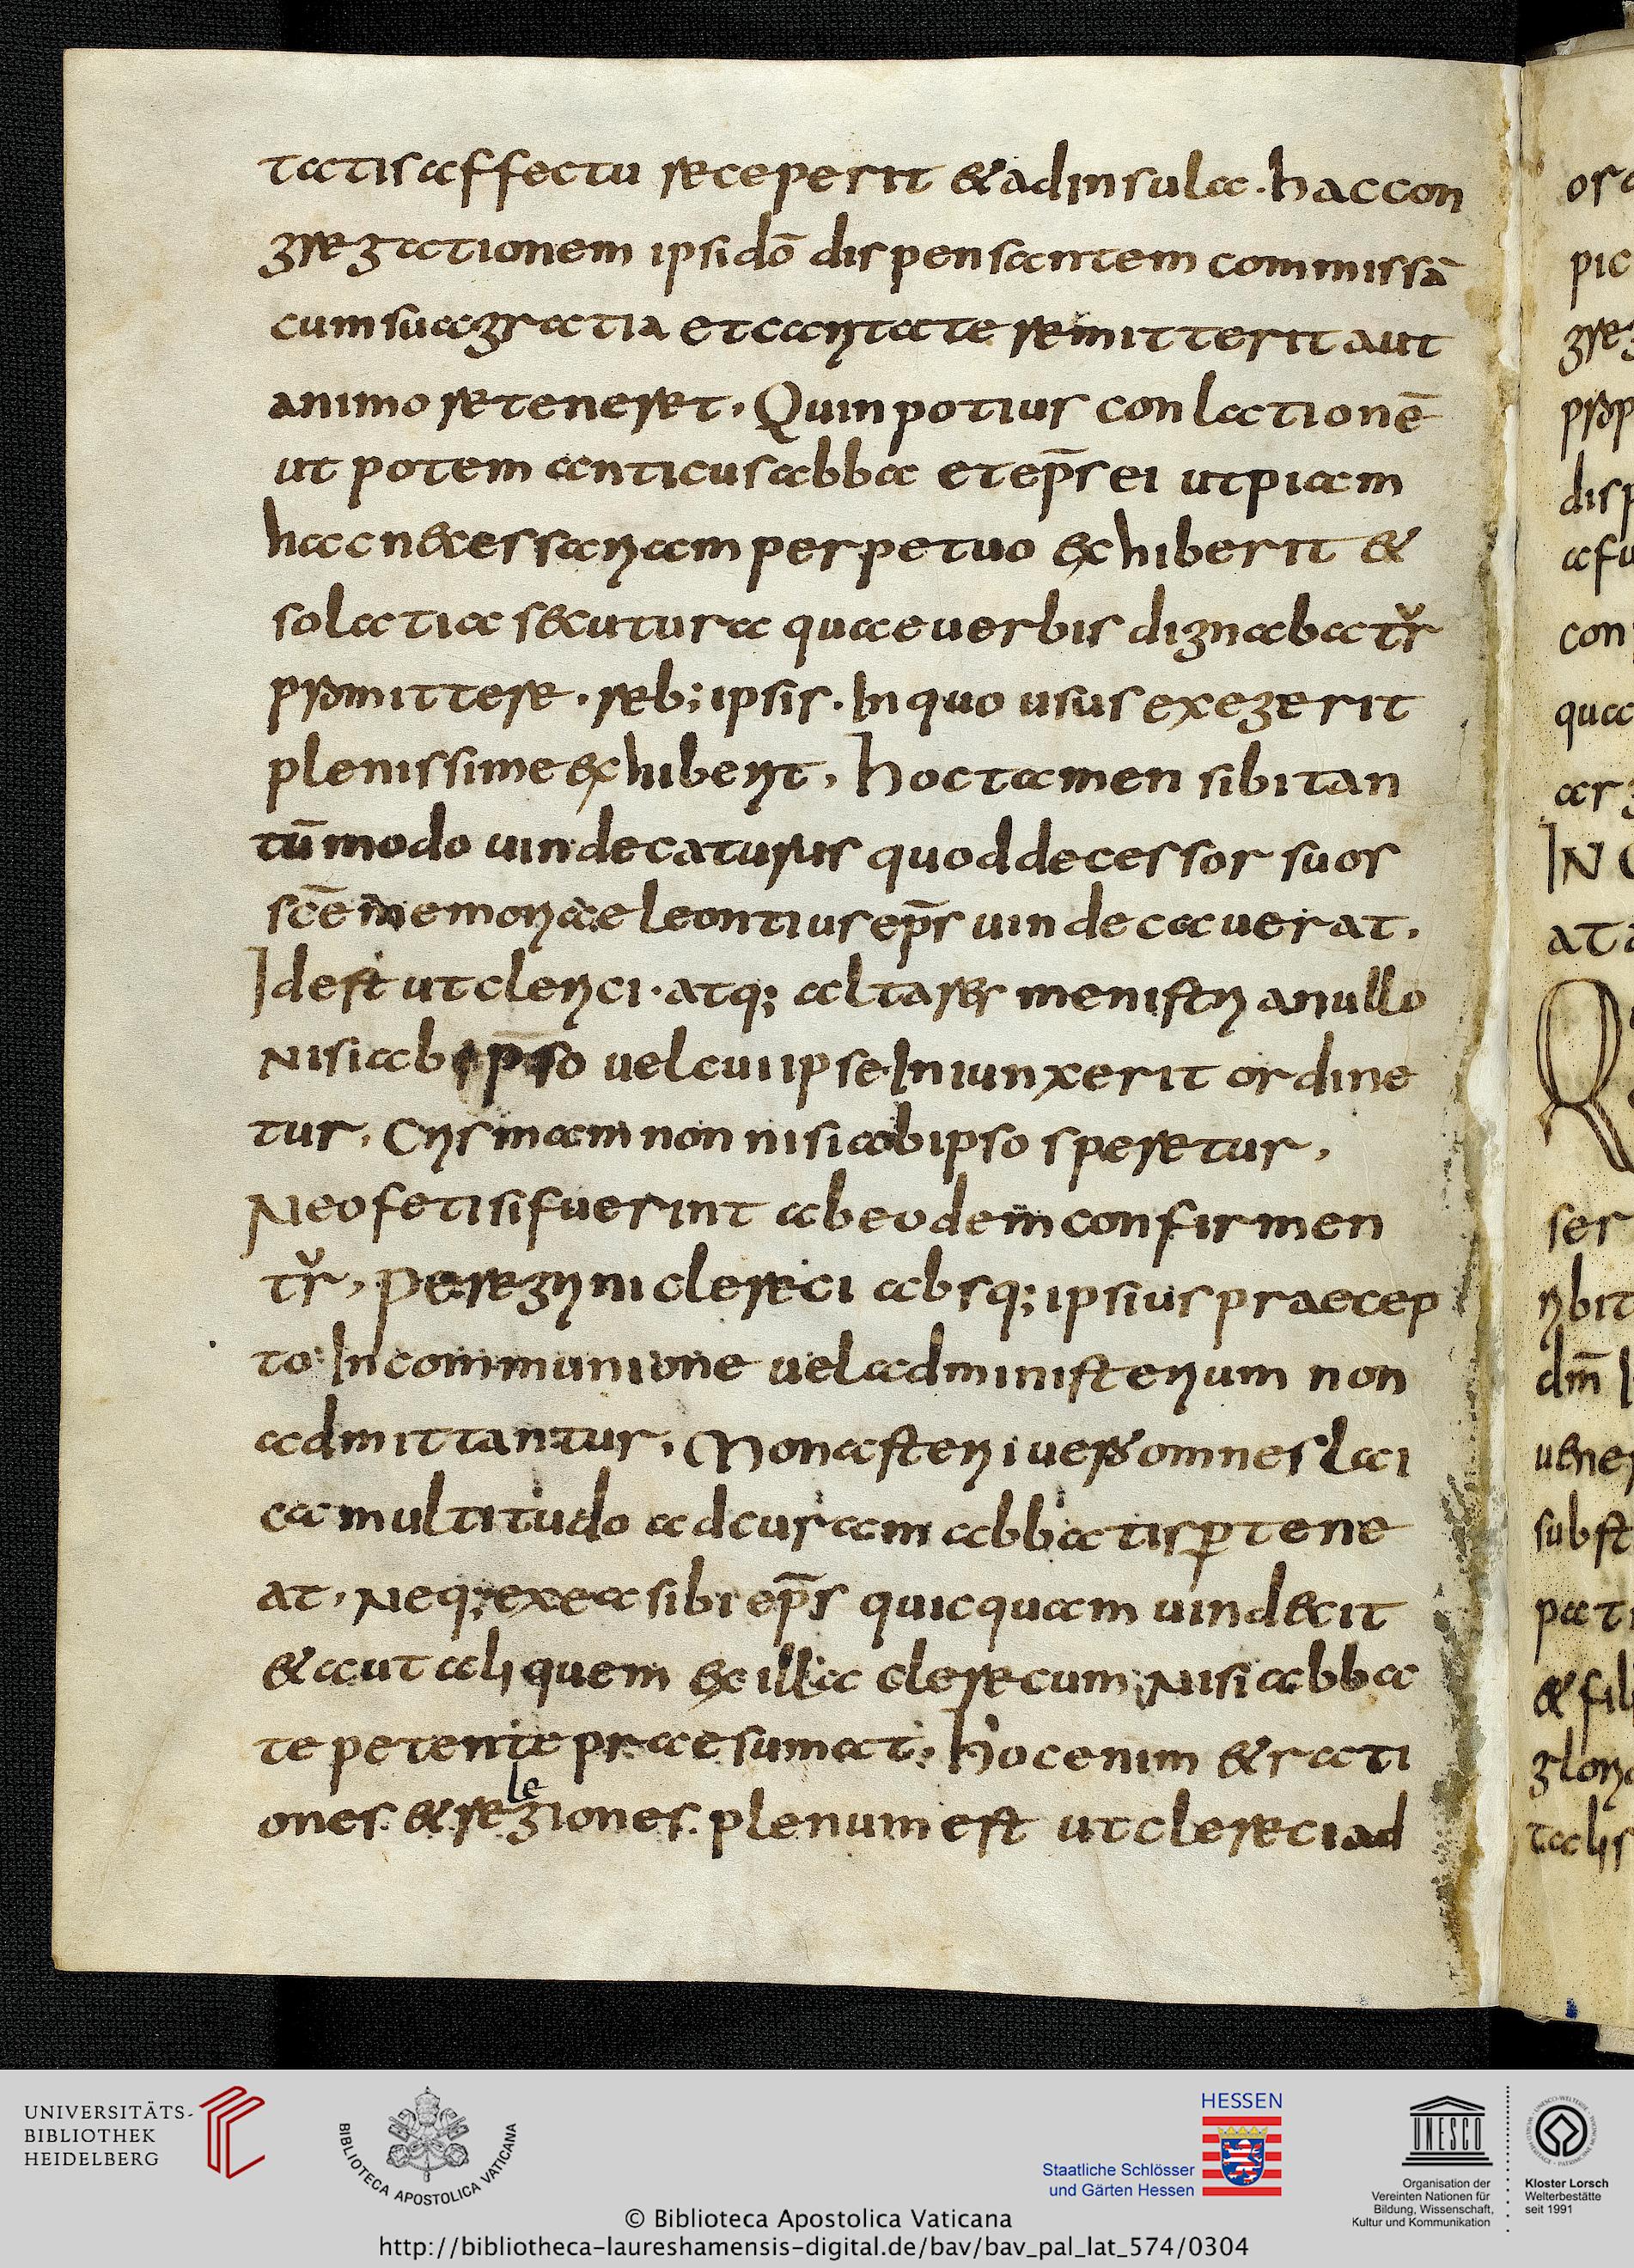 tatis affectu receperit & ad insula · hac con
gregationem ipsi dō dispensantem commissā
cum sua gratia et caritate remitterit aut
animo reteneret, Quin potius conlationē
ut potem anticus abba et ep̄s ei ut piam
hac n&cessariam perpetuo &xhiberit &
solatia s&cutura quae uerbis dignabatr̆
promittere · reb; ipsis · In quo usus exegerit
plenissime &xhiberit, Hoc tamen sibi tan
tū modo uindecaturus quod decessor suos
scē memoriae leontius ep̄s uindecauerat.
Id est ut clerici · atq; altares menistri a nullo
Nisi ab ipso uel cui ipse Iniunxerit ordine
tur, Crismam non nisi ab ipso speretur,
Neofeti si fuerint ab eodem confirmen
tr̆, Peregrini clereci absq; ipsius praecep
to In communione uel ad ministerium non
admittantur, Monasterii uero omnes lai
ca multitudo ad curam abbatis ꝑtene
at, Neq; ex ea sibi ep̄s quicquam uind&cit
& aut aliquem &x illa clerecum Nisi abba
te petente praesumat; Hoc enim & rati
le
ones & regiones plenum est ut clereci ad
or
pic
greg
prop
disp
afu
con
qua
arg
IN
ata
Q
ser
ribit
dm̄ I
uene
subst
pati
& fili
glori
talis
UNIVERSITÄTS-
BIBLIOTHEK
HEIDELBERG
BIBLIOTECA APOSTOLICA VATICANA
HESSEN
Staatliche Schlösser
und Gärten Hessen
UNESCO
Organisation der
Vereinten Nationen für
Bildung, Wissenschaft,
Kultur und Kommunikation
Kloster Lorsch
Welterbestätte
seit 1991
© Biblioteca Apostolica Vaticana
http://bibliotheca-laureshamensis-digital.de/bav/bav_pal_lat_574/0304